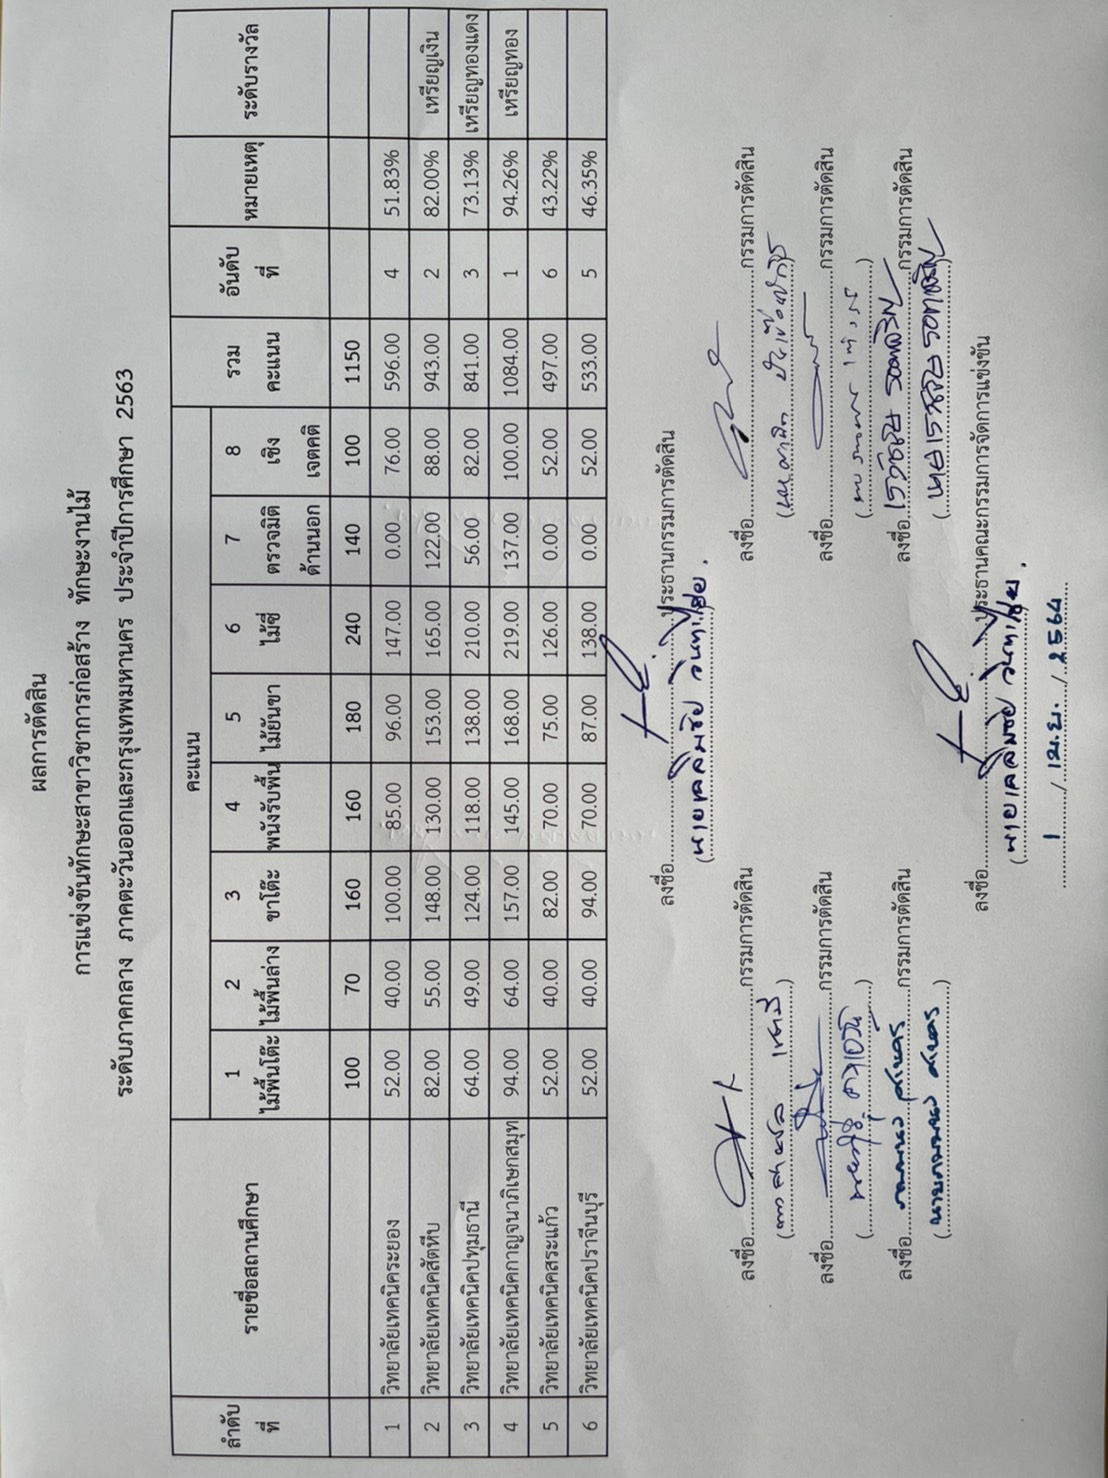 ผลการตัดสิน
การแข่งขันทักษะสาขาวิชาการก่อสร้าง ทักษะงานไม้
ระดับภาคกลาง ภาคตะวันออกและกรุงเทพมหานคร ประจำปีการศึกษา 2563
ลำดับที่ รายชื่อสถานศึกษา คะแนน รวมคะแนน อันดับที่ หมายเหตุ ระดับรางวัล
1 2 3 4 5 6 7 8
ไม้พื้นโต๊ะ ไม้พื้นล่าง ขาโต๊ะ พนังรับพื้น ไม้ยันขา ไม้ซี่ ตรวจมิติด้านนอก เชิงเจตคติ
100 70 160 160 180 240 140 100 1150
1 วิทยาลัยเทคนิคระยอง 52.00 40.00 100.00 85.00 96.00 147.00 0.00 76.00 596.00 4 51.83%
2 วิทยาลัยเทคนิคสัตหีบ 82.00 55.00 148.00 130.00 153.00 165.00 122.00 88.00 943.00 2 82.00% เหรียญเงิน
3 วิทยาลัยเทคนิคปทุมธานี 64.00 49.00 124.00 118.00 138.00 210.00 56.00 82.00 841.00 3 73.13% เหรียญทองแดง
4 วิทยาลัยเทคนิคกาญจนาภิเษกสมุท 94.00 64.00 157.00 145.00 168.00 219.00 137.00 100.00 1084.00 1 94.26% เหรียญทอง
5 วิทยาลัยเทคนิคสระแก้ว 52.00 40.00 82.00 70.00 75.00 126.00 0.00 52.00 497.00 6 43.22%
6 วิทยาลัยเทคนิคปราจีนบุรี 52.00 40.00 94.00 70.00 87.00 138.00 0.00 52.00 533.00 5 46.35%
ลงชื่อ ประธานกรรมการตัดสิน
(นายเฉลิมชัย วันทาไชย)
ลงชื่อ กรรมการตัดสิน ลงชื่อ กรรมการตัดสิน
ลงชื่อ กรรมการตัดสิน ลงชื่อ กรรมการตัดสิน
ลงชื่อ กรรมการตัดสิน ลงชื่อ กรรมการตัดสิน
ลงชื่อ ประธานคณะกรรมการจัดการแข่งขัน
(นายเฉลิมชัย วันทาไชย)
1 / เม.ย. / 2564